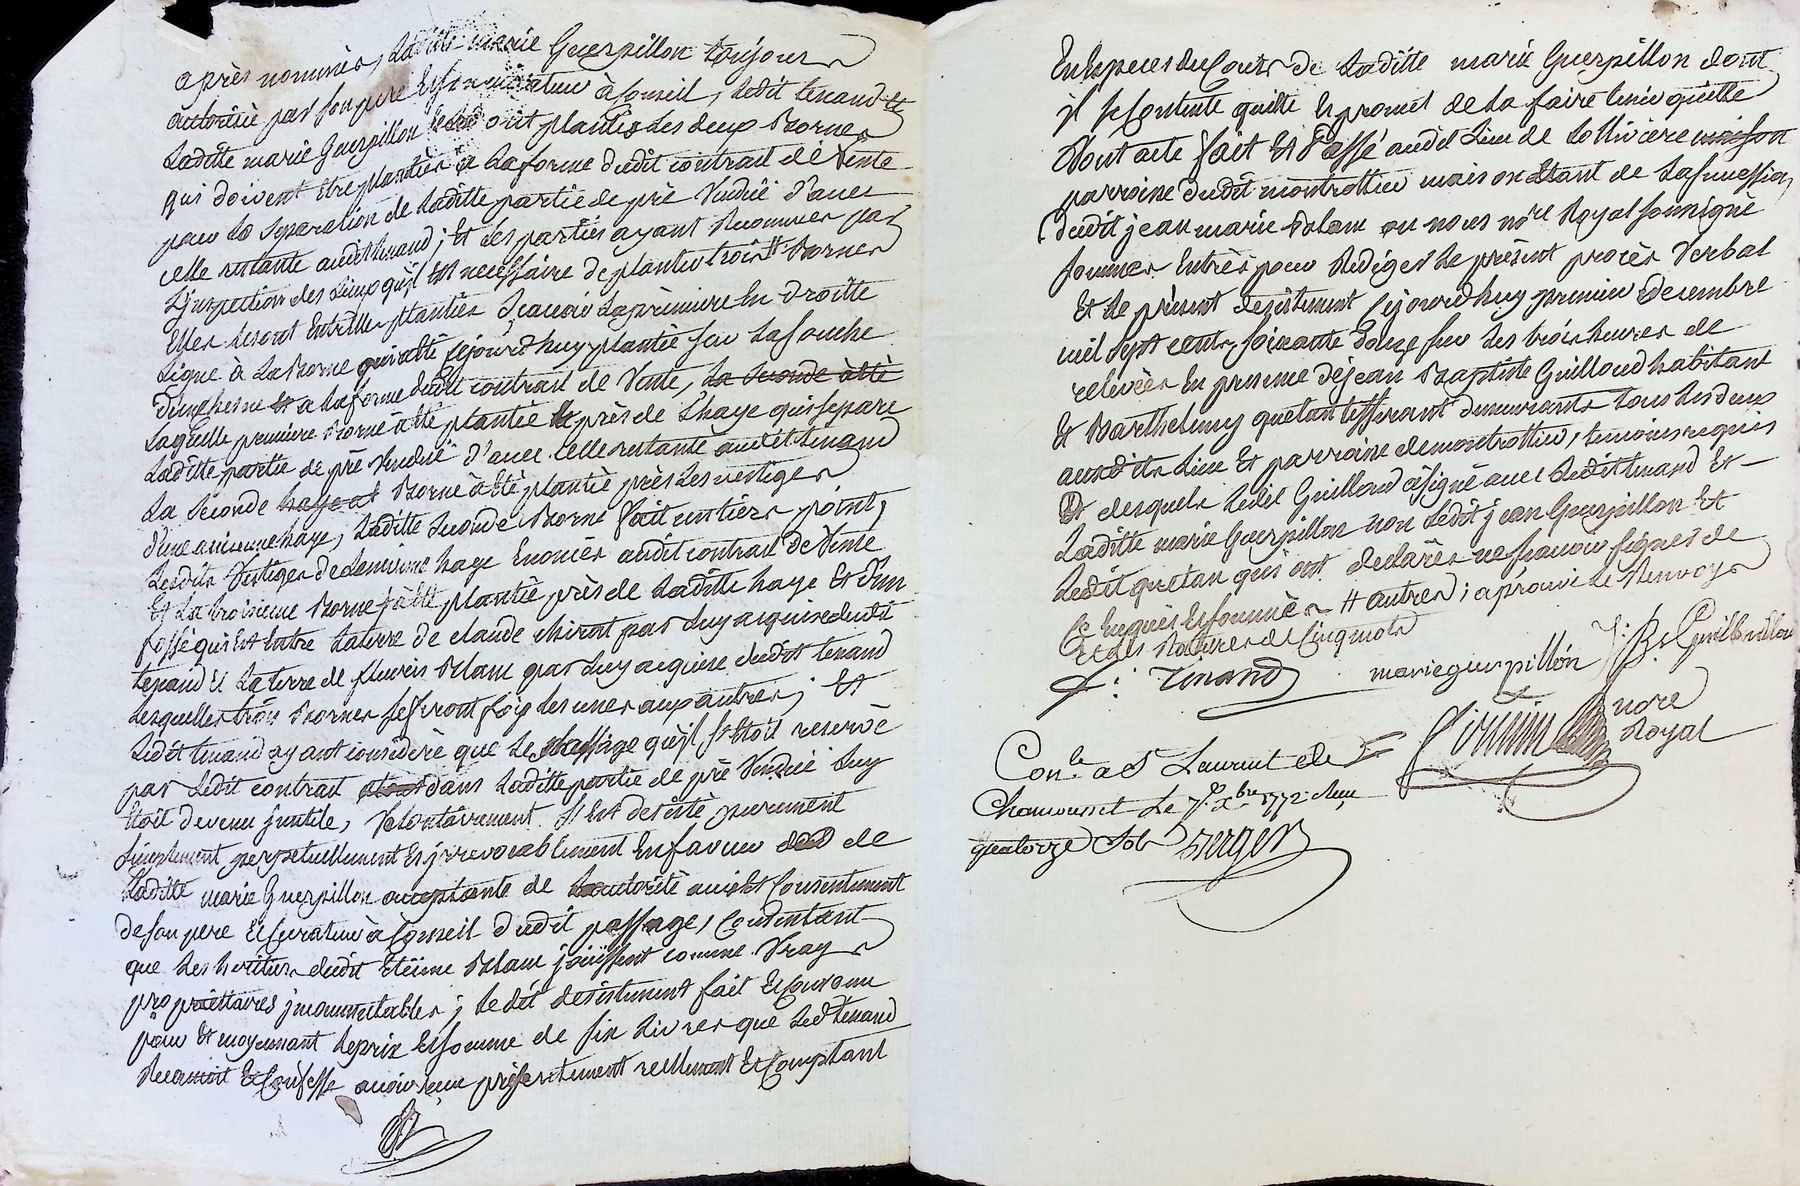 après nommés, Laditte marie Guerpillon toujours
autorisée par son pere Et son curateur à Conseil, Ledit tenand Et
Laditte marie Guerpillon ont plantés Les deux Bornes
qui doivent Etre plantées à La forme dudit contract de Vente
pour La Separation de Laditte partie de pré Vendüe d'avec
celle restante audit tenand; Et Les parties ayant Reconnues par
L'inspection des Lieux qu'il Est necessaire de planter trois Bornes
Elles seront Entr'elles plantées Sçavoir La premiere En droitte
Ligne à La Borne qui a été ce jourd'huy plantée sur La souche
d'un chesne Et a La forme dudit contract de Vente, La Seconde à été
Laquelle premiere Borne à été plantée près de L'haye qui separe
Laditte partie de pré Vendüe d'avec Celle restante audit tenand
La Seconde haye et Borne à été plantée près Les vestiges
d'une ancienne haye, Laditte Seconde Borne fait entiers point,
Lesdits Vestiges de L'encienne haye Enoncés audit contract de Vente
Et La troisieme Borne a été plantée près de Laditte haye Et d'un
fossé qui Est Entre La terre de claude chirat par Luy acquise dudit
tenand Et La terre de fleuris Blanc par Luy acquise dudit tenand
Lesquelles trois Bornes se feront foix Les unes aux autres; Et
Ledit tenand ayant consideré que Le passage qu'il s'Etoit reservé
par Ledit contract dans Laditte partie de pré Vendüe Luy
Etoit devenu jnutile, Volontairement s'Est desisté purement
Simplement perpetuellement Et jrrevocablement En faveur de
Laditte marie Guerpillon acceptante de L'autorité avis Et Consentement
de son pere Et Curateur à Conseil dudit passage, Consentant
que Les heritiers dudit Etiënne Blanc joüissent comme Vray
propriettaires jncommutables; Ledit desistement fait Et Convenu
pour Et moyennant Le prix Et somme de six Livres que Ledt tenand
Reconnoit Et Confesse avoir reçu présentement reellement Et Comptant
En Especes du Cours de Laditte marie Guerpillon dont
il se Contente quitte Et promet de La faire tenir quitte
Dont acte fait Et Passé audit Lieu de Lolliviere maison
parroisse dudit montrottier maison Etant de La succession
dudit jean marie Blanc ou nous nore Royal soussigné
sommes Entrés pour Rediger Le présent procès Verbal
Et Le présent desistement ce jourd'huy premier Decembre
mil sept cents soixante douze sur Les trois heures de
relevées En presence de jean Baptiste Guilloud habitant
Et Barthelemy quetan tisserant demeurants tous Les deux
ausdits Lieu Et parroisse de montrottier, temoins requis
Et desquels Ledit Guilloud à signé avec Ledit tenand Et
Laditte marie Guerpillon non Ledit jean Guerpillon Et
Ledit quetan qui ont declarés ne sçavoir signer de
Ce Enquis Et sommés # autres; aprouvé Le Renvoy
Et Les Ratures de Cinq mots
f: Tinand marieguerpillon J: B: Guilloud
nore
Royal
Conlé a St Laurent de
Chamousset Le 7e Xbre 1772 Reçu
quatorze sols Berger